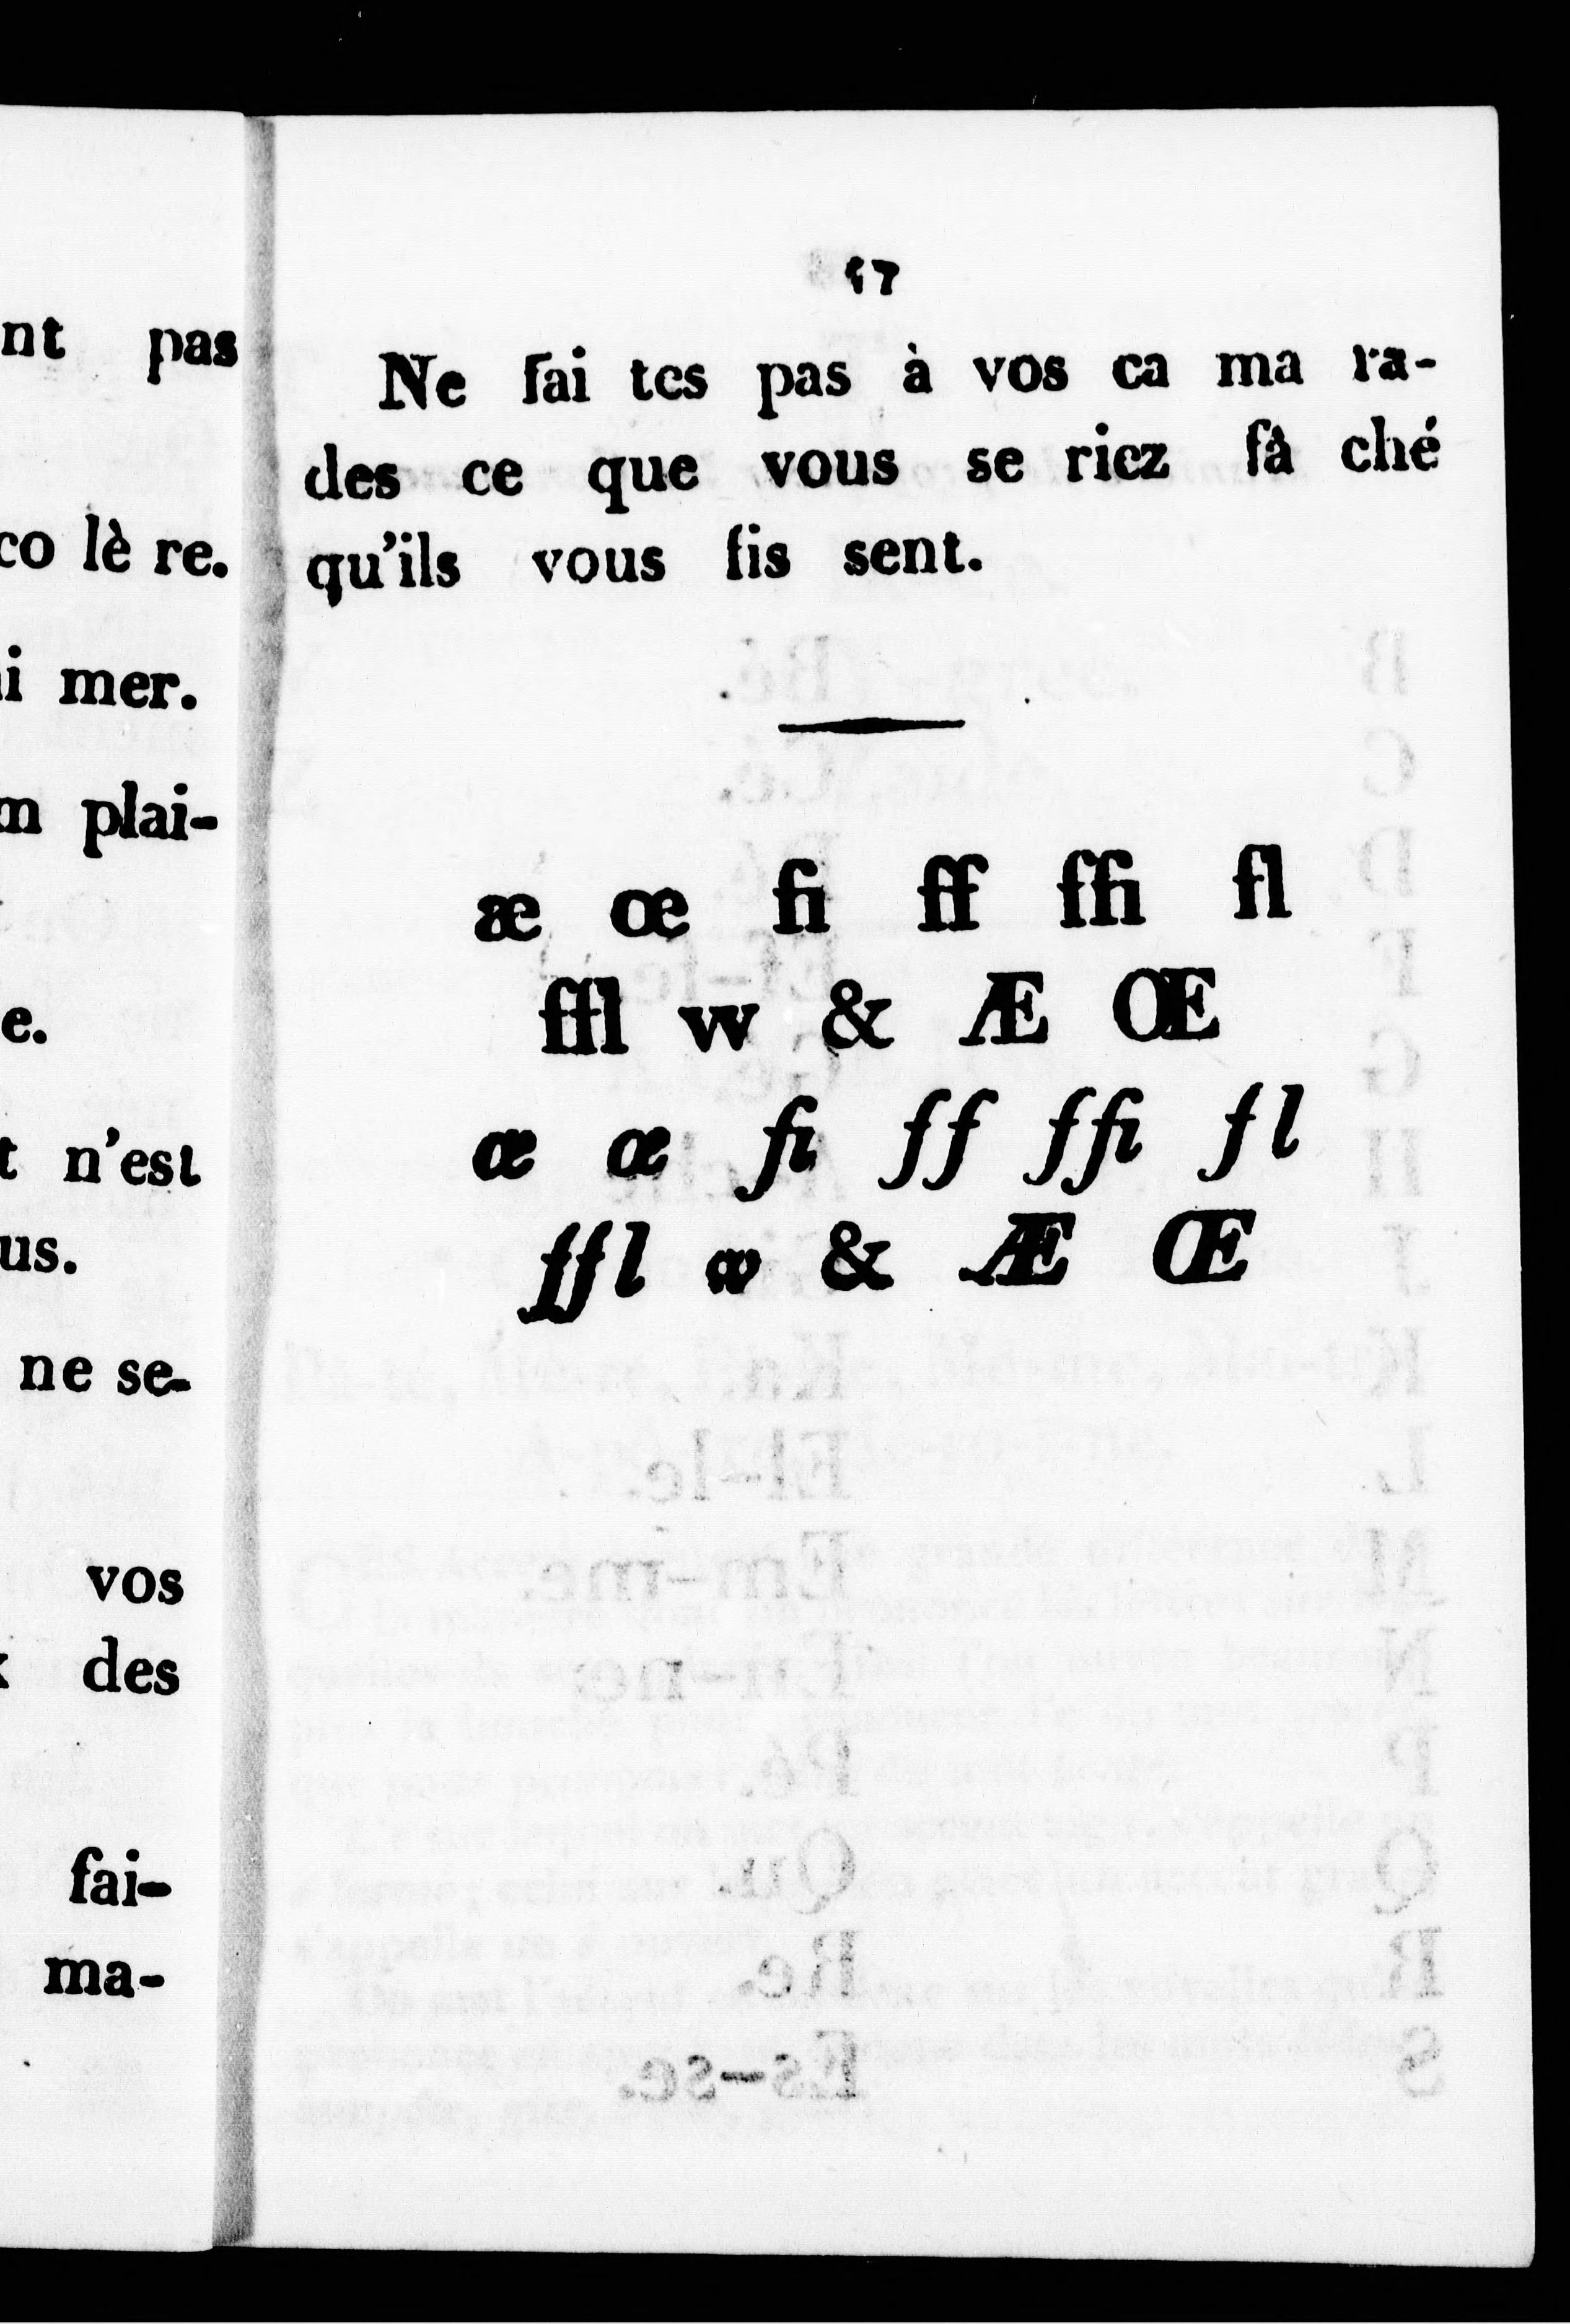 nt pas
co lè re.
i mer.
n plai-
e.
t n'est
us.
ne se-
vos
des
fai-
ma-
17
Ne fai tes pas à vos ca ma ra-
des ce que vous se riez fâ ché
qu'ils vous fis sent.
æ œ fi ff ffi fl
ffl w & Æ Œ
æ œ fi ff ffi fl
ffl w & Æ Œ